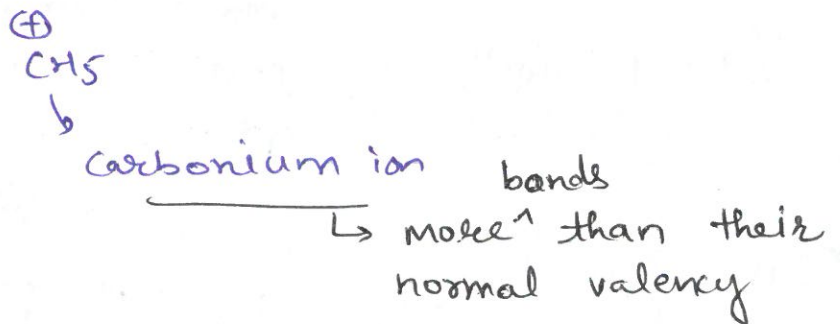 ⊕
CH5
↳
carbonium ion
↳ more ^bonds than their
normal valency